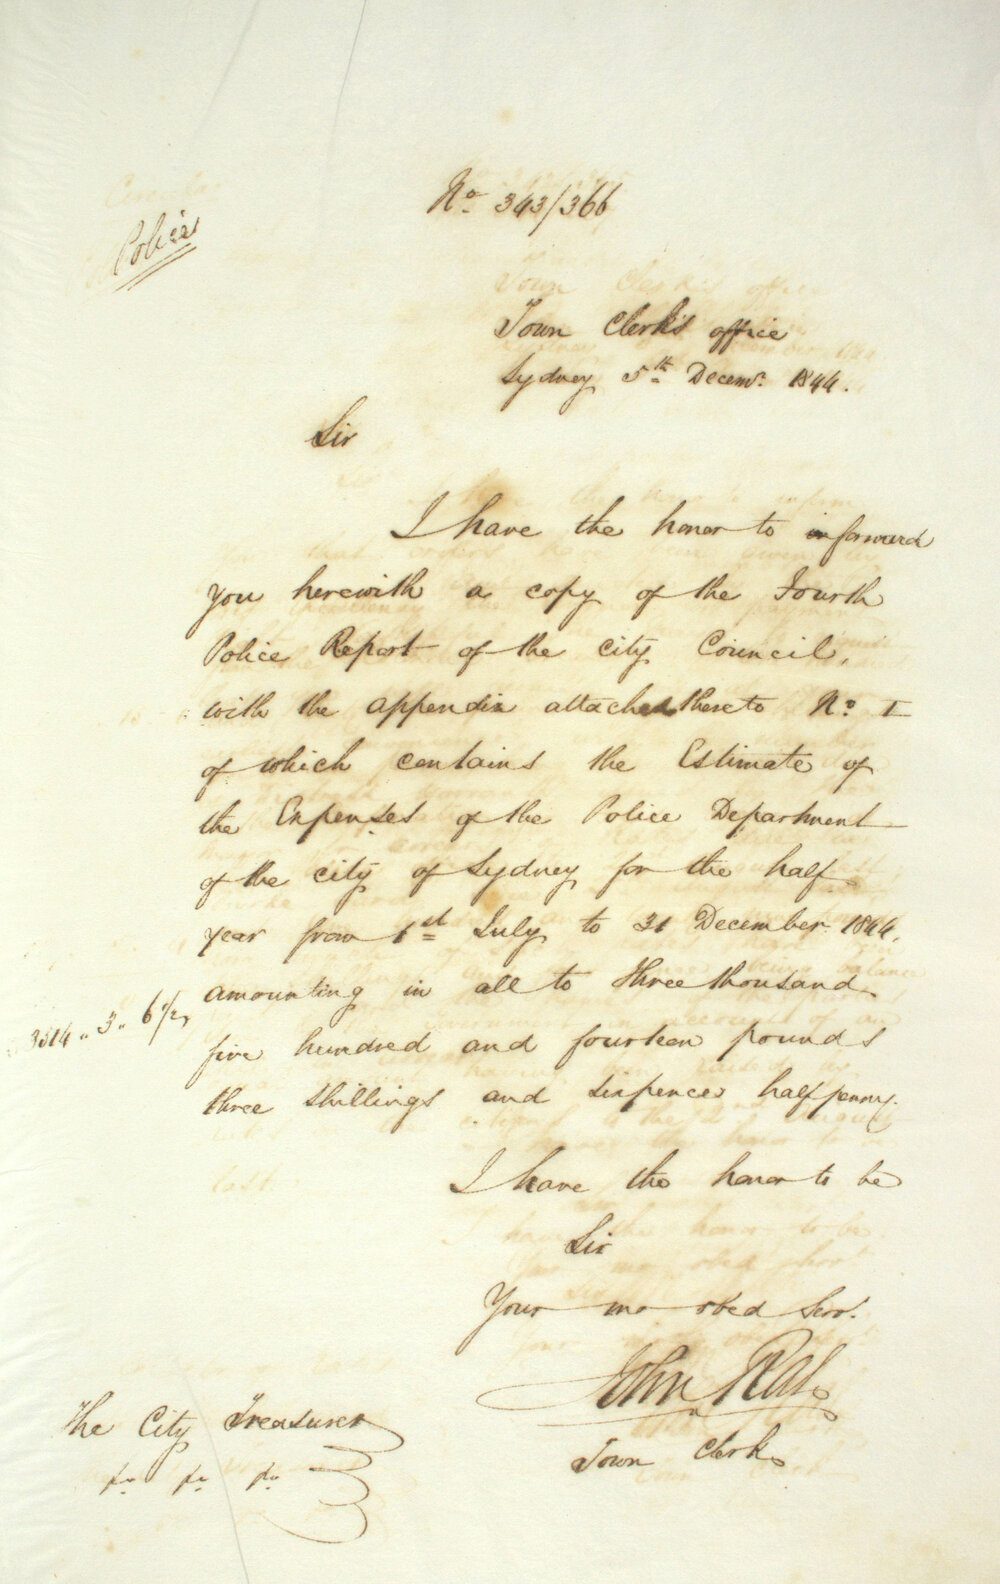 No. 343/366
Police
Town Clerk's office
Sydney 5th Decemr. 1844.
Sir
I have the honor to forward
you herewith a copy of the Fourth
Police Report of the City Council,
with the appendix attached thereto No. I
of which contains the Estimate of
the Expenses of the Police Department
of the city of Sydney for the half
year from 1st July to 31 December 1844,
amounting in all to three thousand
3514 " 3 " 6½
five hundred and fourteen pounds
three shillings and sixpence halfpenny.
I have the honor to be
Sir
Your mo obed Servt.
John Rae
Town Clerk
The City Treasurer